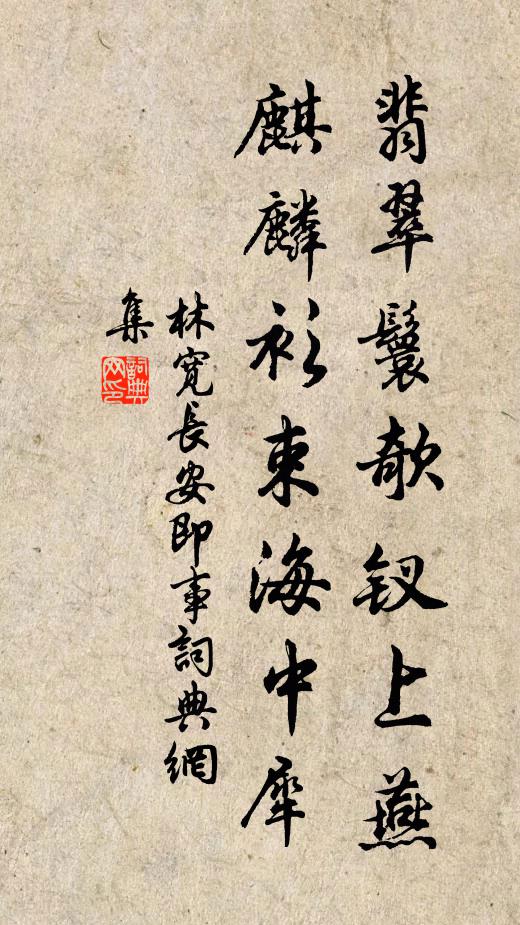 翡翠鬟欹釵上燕
麒麟衫束海中犀
林寬長安即事詞典網
集
詞典
网印